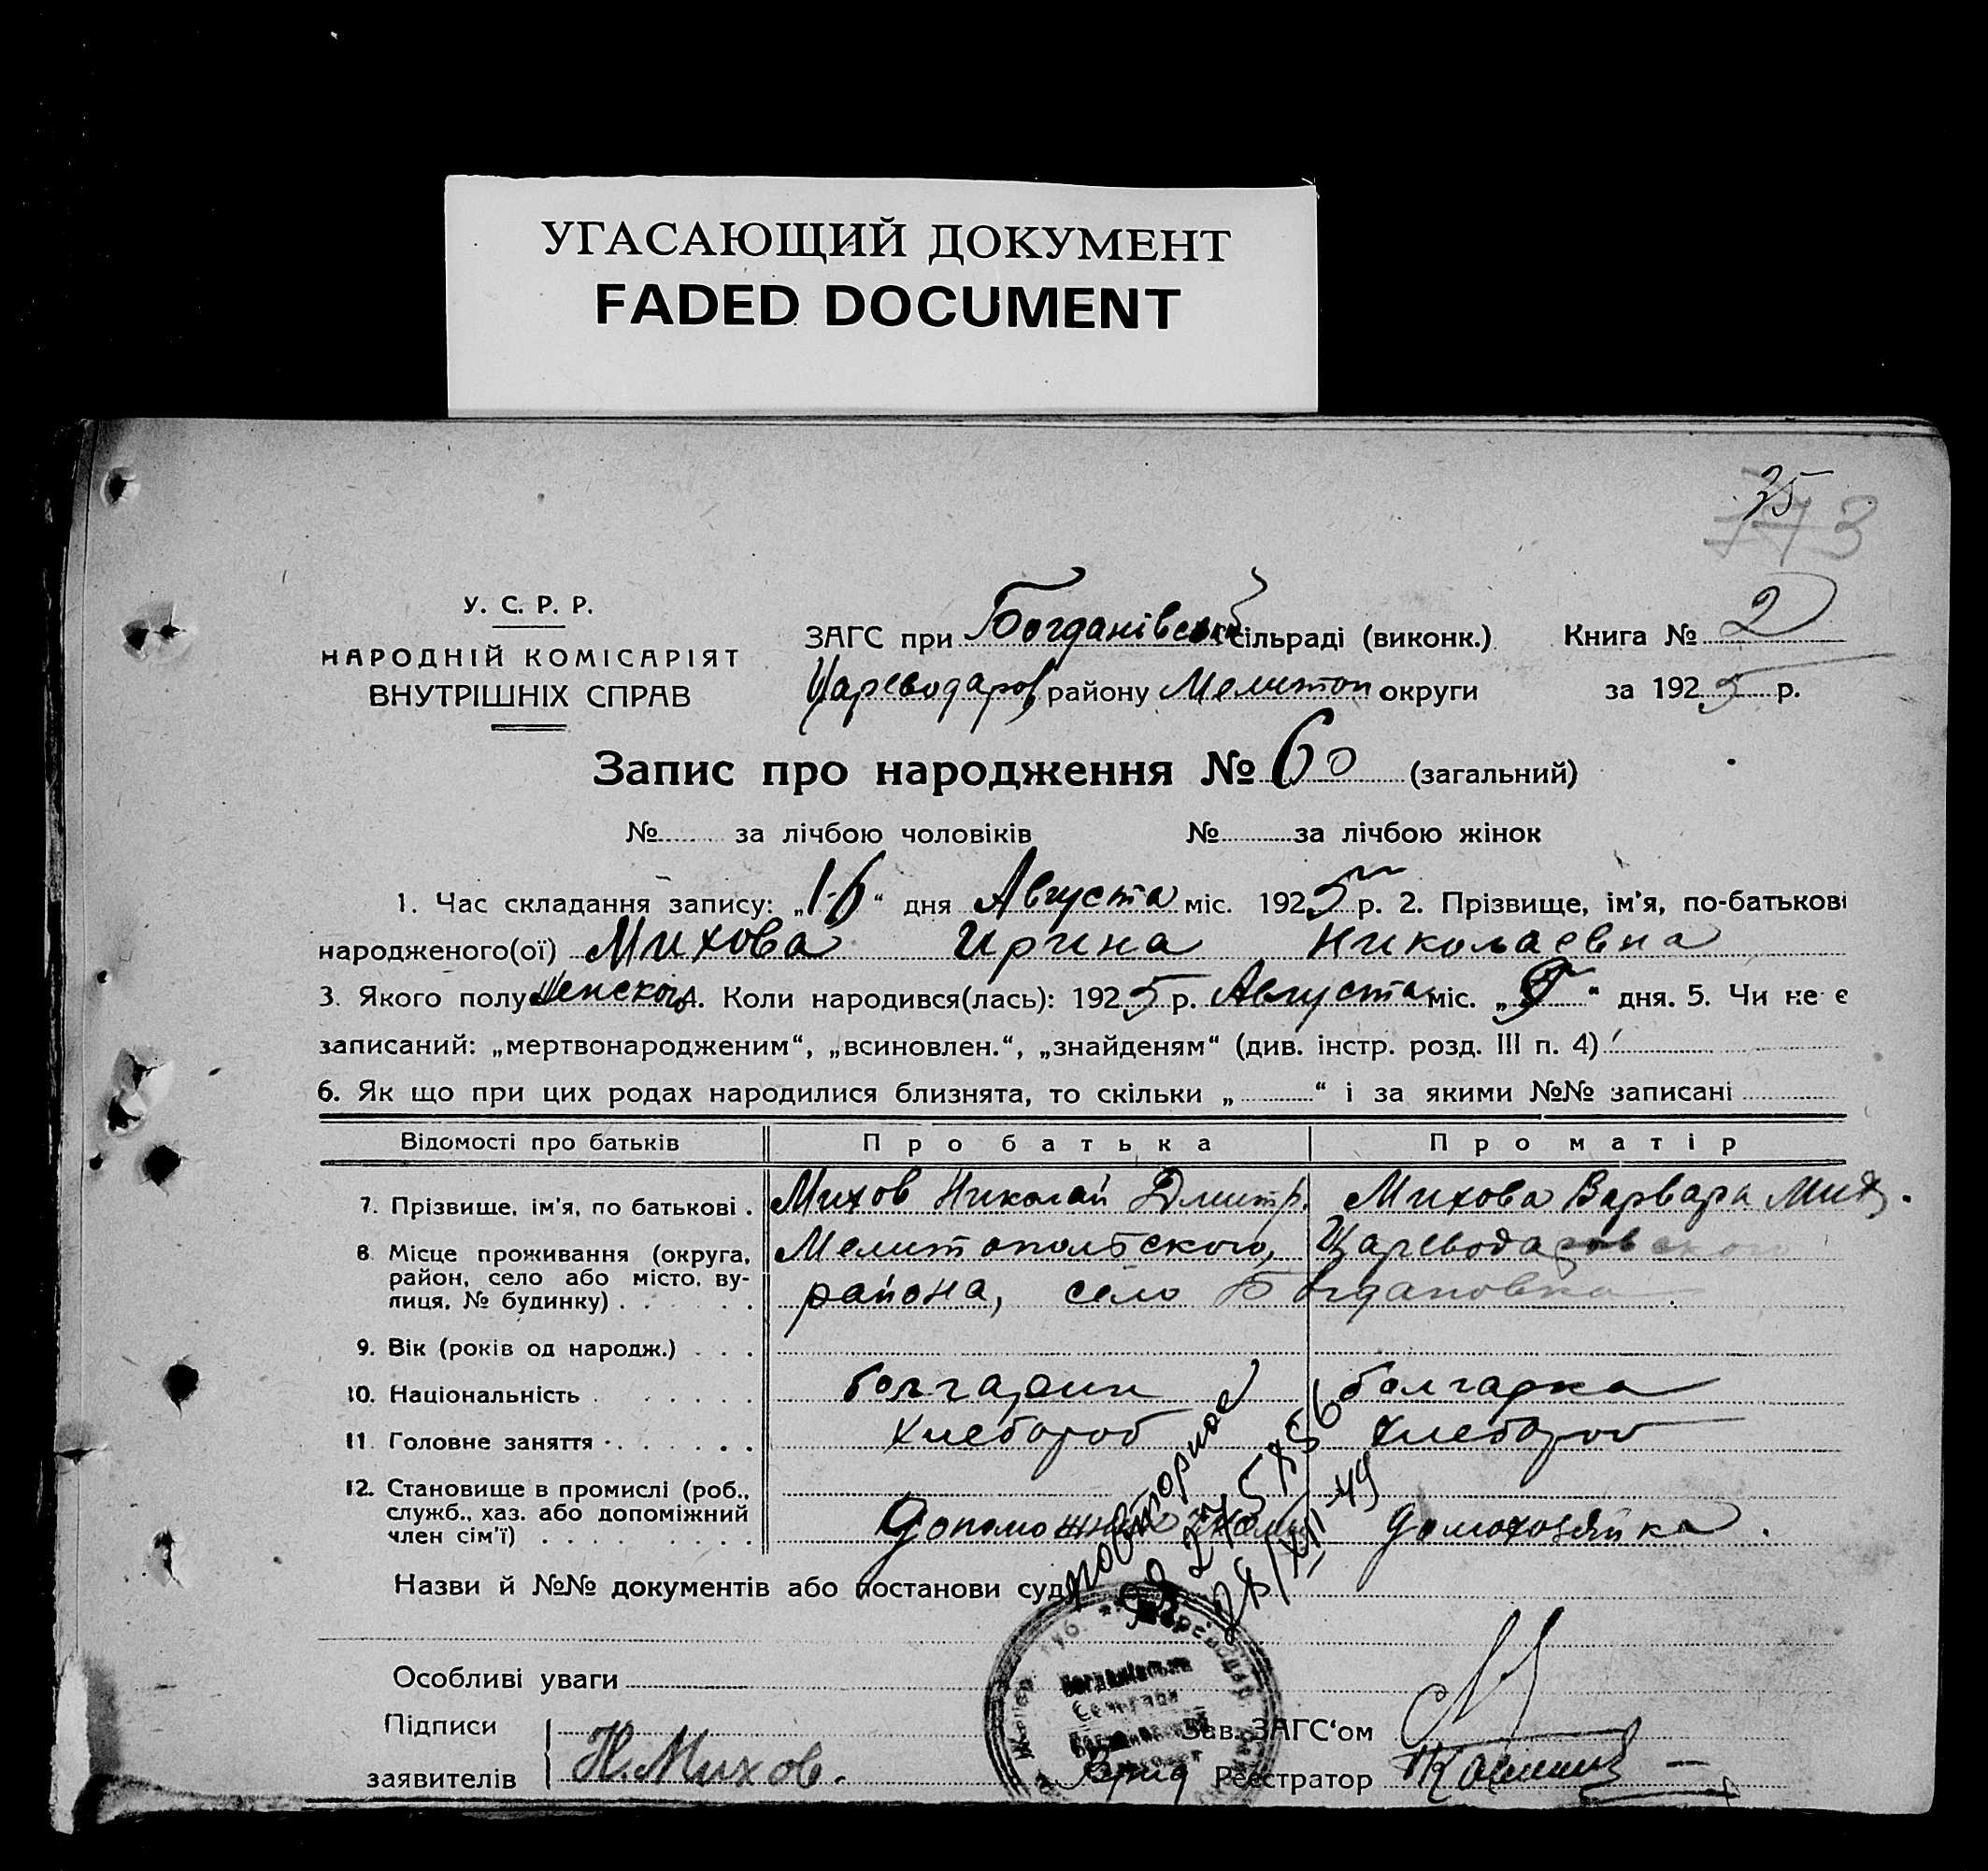 УГАСАЮЩИЙ ДОКУМЕНТ
FADED DOCUMENT
35
173
У. С. Р. Р.
НАРОДНІЙ КОМІСАРІЯТ
ВНУТРІШНІХ СПРАВ
ЗАГС при Богданівській сільраді (виконк.) Книга № 2
Цареводаров району Мелитоп округи за 1925 р.
Запис про народження № 60 (загальний)
№ за лічбою чоловіків № за лічбою жінок
1. Час складання запису: „16“ дня Августа міс. 1925 р. 2. Прізвище, ім'я, по-батькові
народженого(ої) Михова Ирина Николаевна
3. Якого полу женского 4. Коли народився(лась): 1925 р. Августа міс. „5“ дня. 5. Чи не є
записаний: „мертвонародженим“, „всиновлен.“, „знайденям“ (див. інстр. розд. III п. 4)
6. Як що при цих родах народилися близнята, то скільки „ “ і за якими №№ записані
Відомості про батьків Про батька Про матір
7. Прізвище, ім'я, по батькові . Михов Николай Дмитр. Михова Варвара Мих.
8. Місце проживання (округа, Мелитопольского, Цареводаровского
район, село або місто, ву-
лиця, № будинку) . района, село Богдановка.
9. Вік (років од народж.) . . .
10. Національність болгарин болгарка
11. Головне заняття хлебороб хлебороб
12. Становище в промислі (роб.,
служб., хаз. або допоміжний
член сім'ї) домохозяйка.
повторное
28/XII-49
Назви й №№ документів або постанови суд
Особливі уваги
Підписи Зав. ЗАГС‘ом
заявителів Н. Михов. Реєстратор